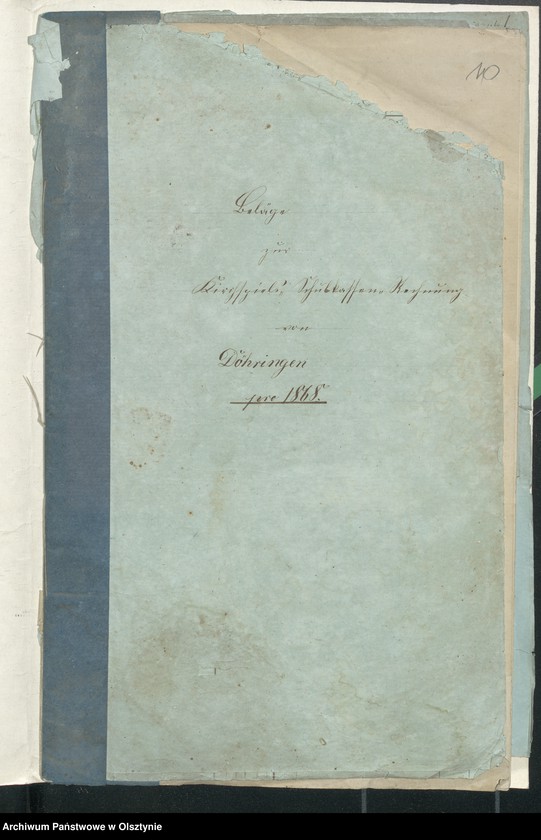 10
Beläge
zur
Kirchspiels-Schulkassen-Rechnung
von
Döhringen
pro 1868.
Archiwum Państwowe w Olsztynie